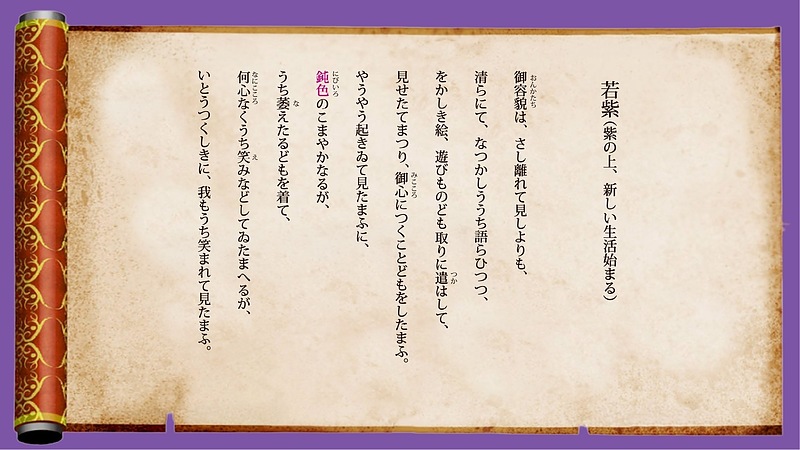 若紫（紫の上、新しい生活始まる）
御容貌は、さし離れて見しよりも、
おんかたち
清らにて、なつかしううち語らひつつ、
をかしき絵、遊びものども取りに遣はして、
つか
見せたてまつり、御心につくことどもをしたまふ。
みこころ
やうやう起きゐて見たまふに、
鈍色のこまやかなるが、
にびいろ
うち萎えたるどもを着て、
な
何心なくうち笑みなどしてゐたまへるが、
なにこころ
え
いとうつくしきに、我もうち笑まれて見たまふ。